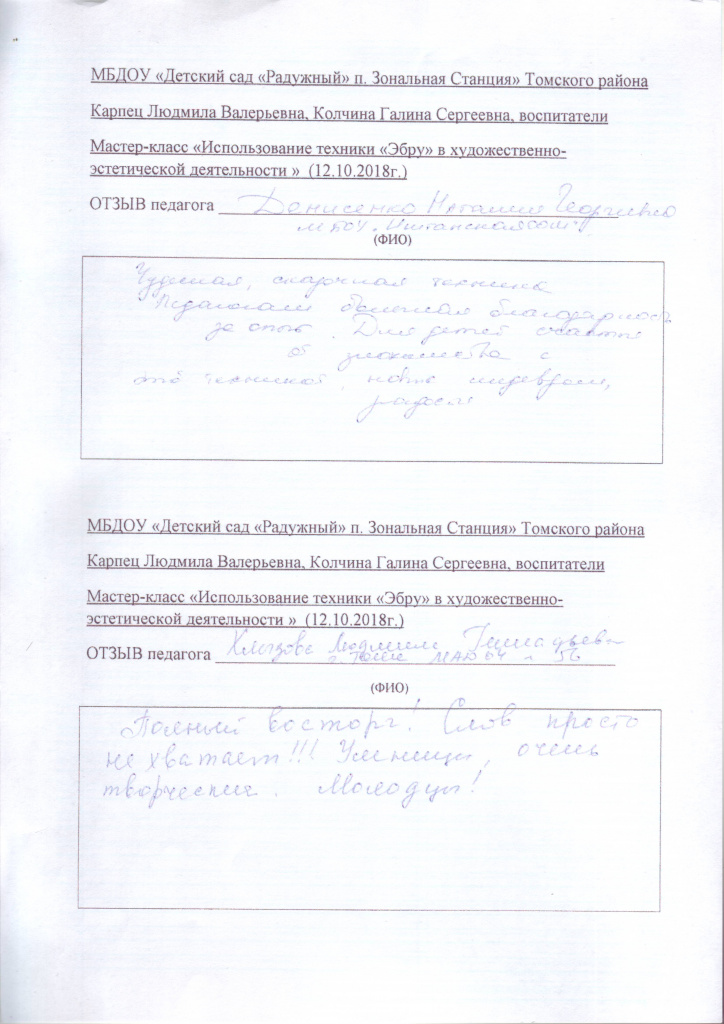 МБДОУ «Детский сад «Радужный» п. Зональная Станция» Томского района
Карпец Людмила Валерьевна, Колчина Галина Сергеевна, воспитатели
Мастер-класс «Использование техники «Эбру» в художественно-
эстетической деятельности » (12.10.2018г.)
ОТЗЫВ педагога Денисенко Наталия Георгиевна
(ФИО)
Чудесная, сказочная техника
Педагогам огромная благодарность
за опыт. Для детей счастья
от знакомства с
техникой, новых шедевров,
радости
МБДОУ «Детский сад «Радужный» п. Зональная Станция» Томского района
Карпец Людмила Валерьевна, Колчина Галина Сергеевна, воспитатели
Мастер-класс «Использование техники «Эбру» в художественно-
эстетической деятельности » (12.10.2018г.)
ОТЗЫВ педагога Людмила Геннадьевна
г. Томск МАОУ № 56
(ФИО)
Полный восторг! Слов просто
не хватает!!! Умницы, очень
творческие. Молодцы!